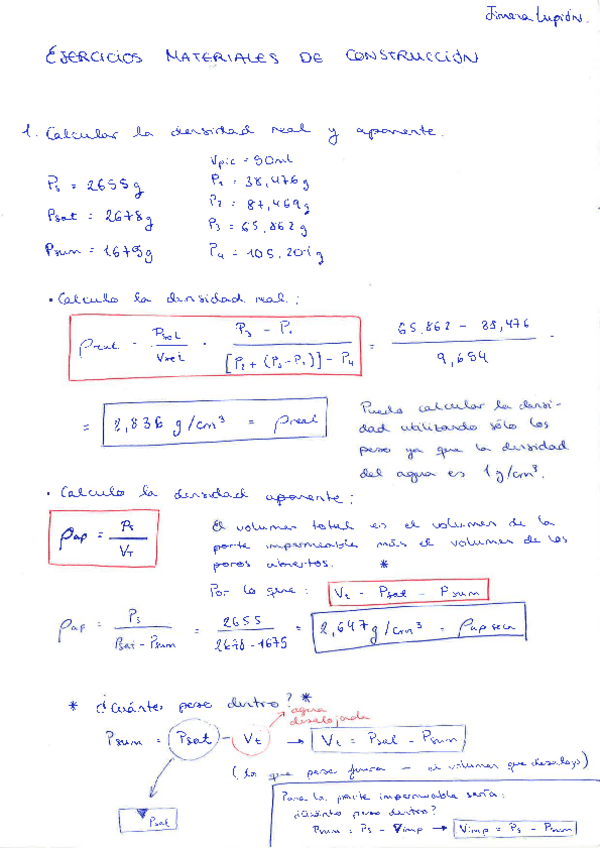 Jimena Lupión.
EJERCICIOS MATERIALES DE CONSTRUCCIÓN
1. Calcular la densidad real y aparente.
Vpic = 50ml
Ps = 2655g P1 = 38,476g
Psat = 2678g P2 = 87,469g
P3 = 65,862g
Psum = 1675g P4 = 105.201g
• Calculo la densidad real:
ρreal = Psol / Vsol = P3 - P1 / [P2 + (P3 - P1)] - P4 = 65.862 - 38,476 / 9,654 =
= 2,836 g/cm³ = ρreal
Puedo calcular la densi-
dad utilizando sólo los
peso ya que la densidad
del agua es 1g/cm³.
• Calculo la densidad aparente:
ρap = Ps / VT
El volumen total es el volumen de la
parte impermeable más el volumen de los
poros abiertos. *
Por lo que: Vt = Psat - Psum
ρap = Ps / Psat - Psum = 2655 / 2678 - 1675 = 2,647g/cm³ = ρap seca
* ¿Cuántos peso dentro? *
agua
desalojada
Psum = Psat - Vt → Vt = Psat - Psum
(lo que pesa fuera - el volumen que desalojo)
Psat
Para la parte impermeable sería:
¿Cuánto peso dentro?
Psum = Ps - Vimp → Vimp = Ps - Psum